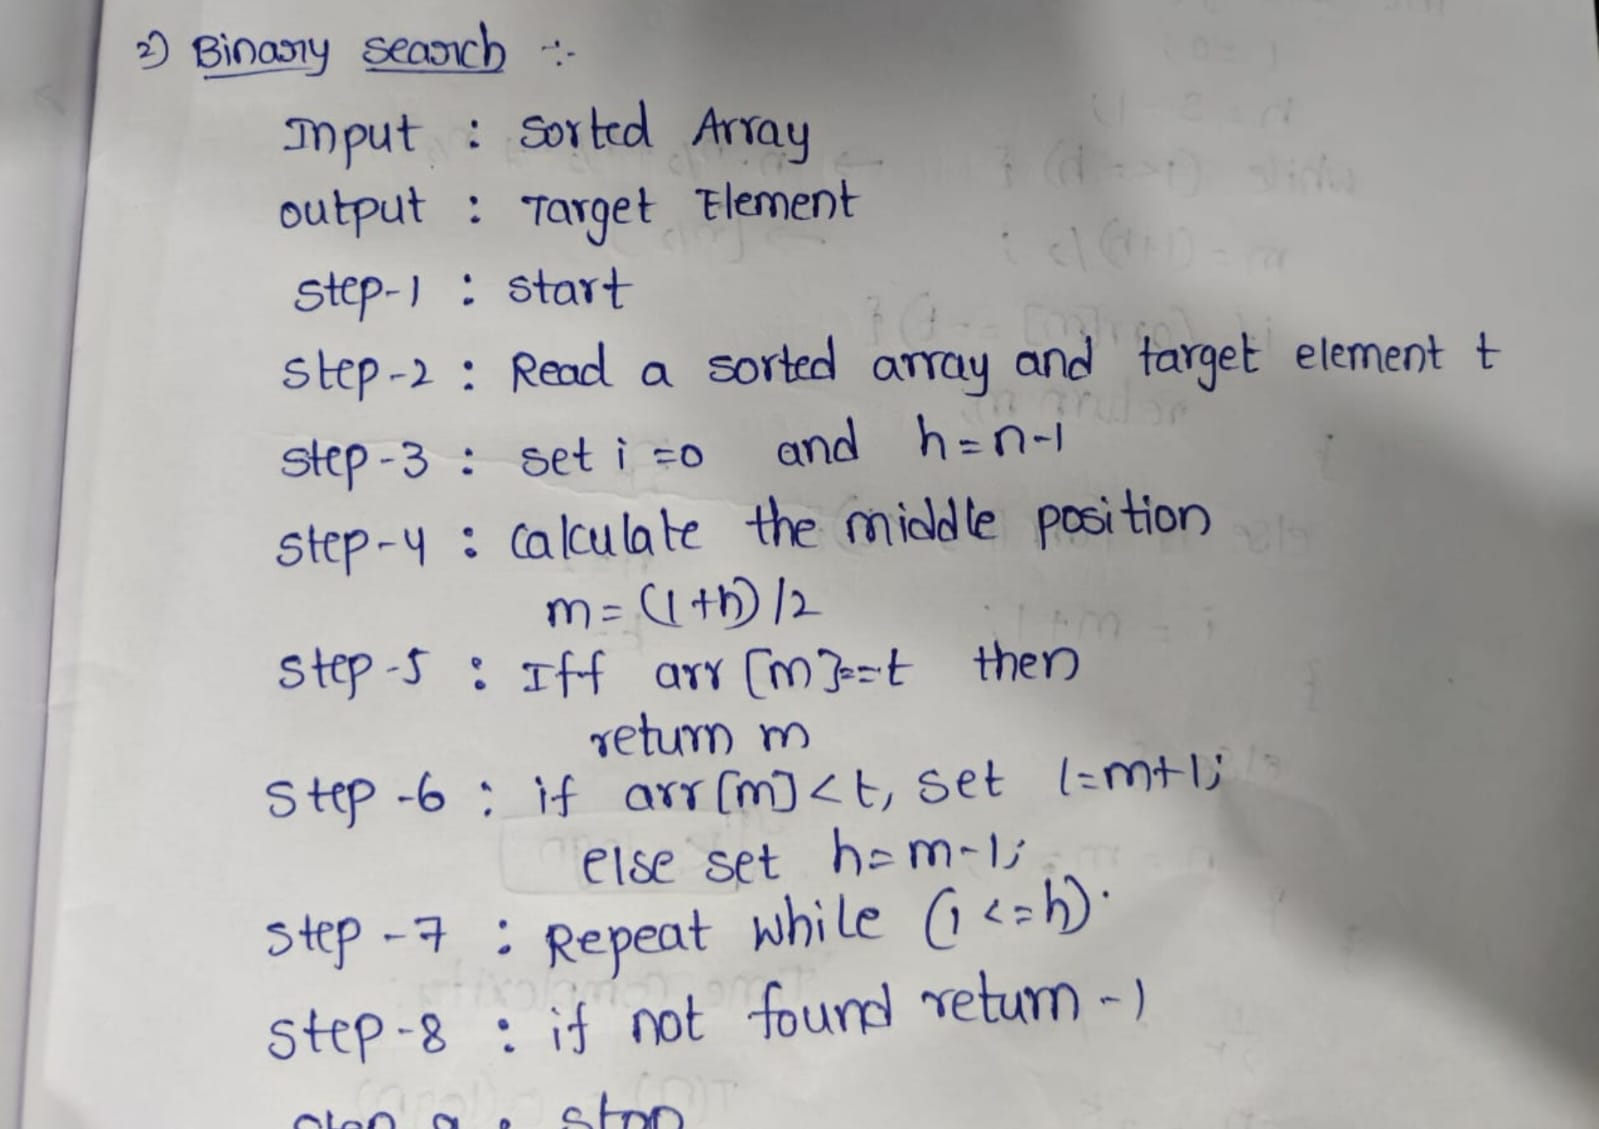 2) Binary search :-
Input : Sorted Array
output : Target Element
step-1 : start
step-2 : Read a sorted array and target element t
step-3 : set i=0 and h=n-1
step-4 : calculate the middle position
m=(l+h)/2
step-5 : Iff arr[m]==t then
return m
step-6 : if arr[m]<t, set l=m+1;
else set h=m-1;
step-7 : Repeat while (i<=h).
step-8 : if not found return -1
step 9 : stop